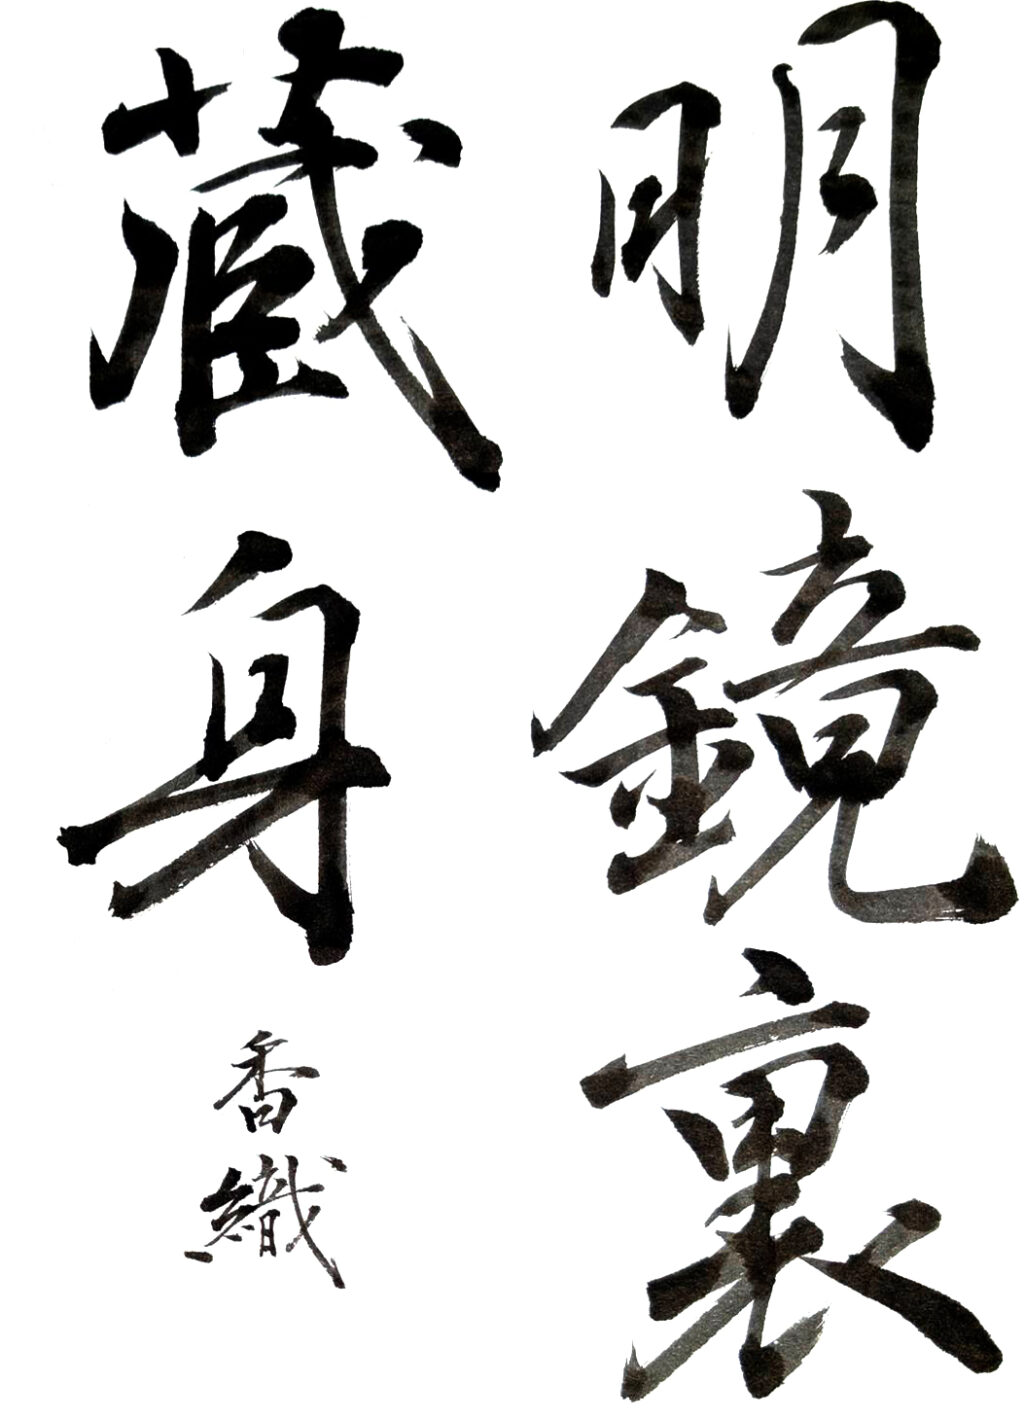 明鏡裏
蔵身
香織